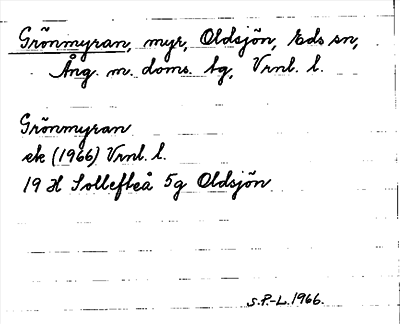 Grönmyran, myr, Oldsjön, Eds sn,
Ång. m. doms. bg, Vrnl. l.
Grönmyran
ek (1966) Vrnl. l.
19 H Sollefteå 5g Oldsjön
S.P.-L. 1966.